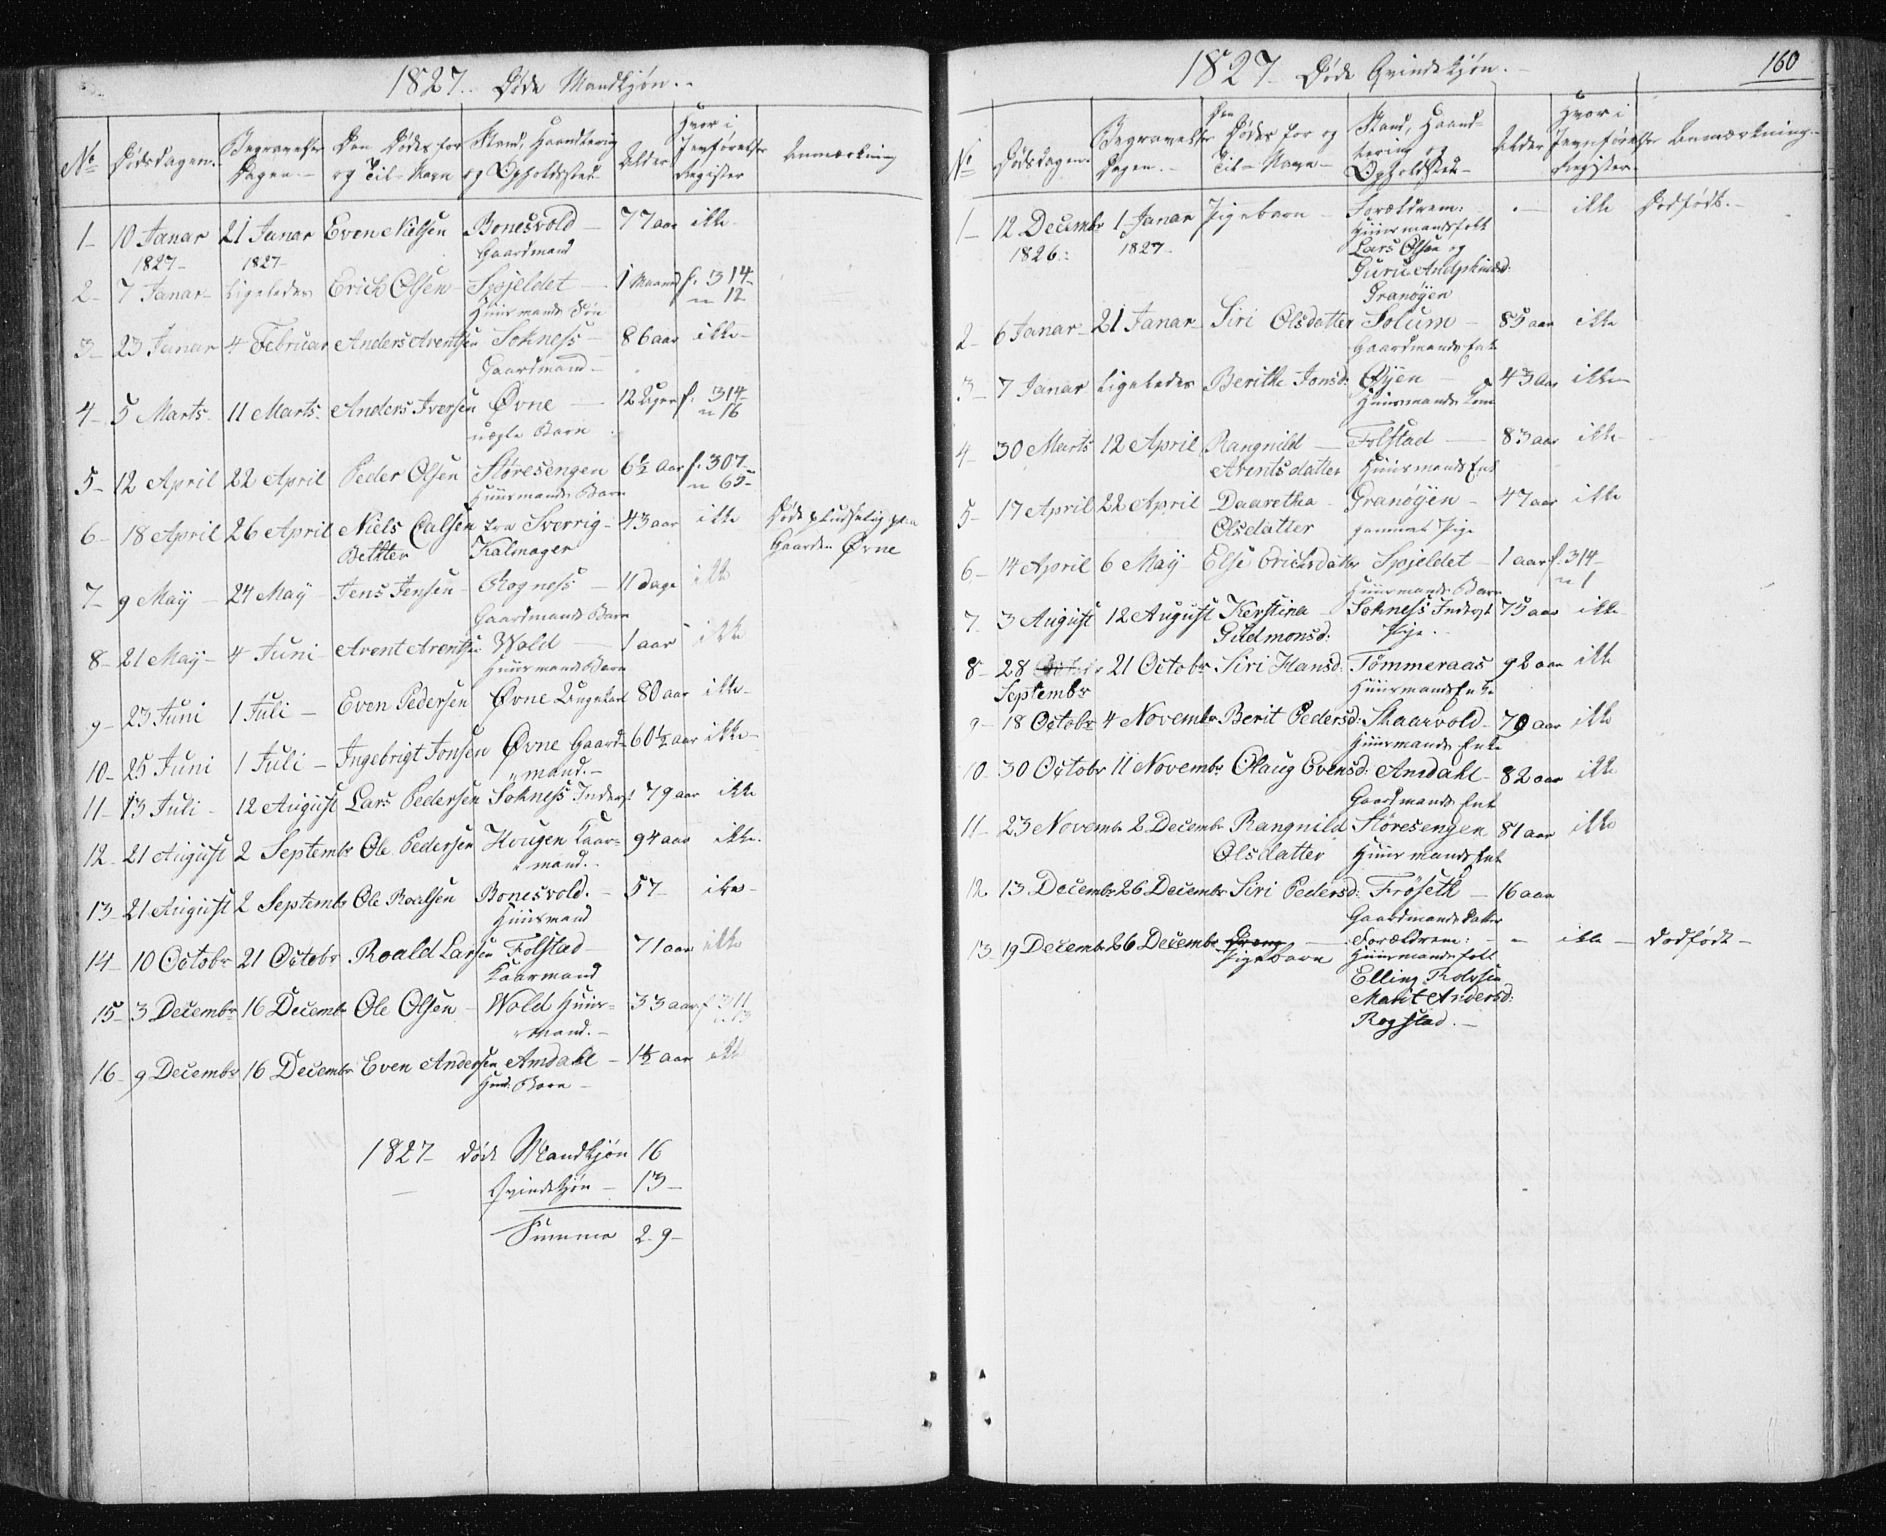 1827. Døde Mandkjøn.
No Dødsdagen. Begravelses Dagen. Den Dødes for og Til-Navn Stand, Haandtering og Opholdssted Alder Hvor i Jevnførelses Register Anmærkning
1 10 Janar 1827 21 Janar 1827 Even Nielsen Bonesvold Gaardmand 77 aar ikke
2 7 Janar Ligeledes Erich Olsen Spjeldet Huusmands Søn 1 Maaned f. 314 n 12
3 23 Janar 4 Februar Anders Arentsen Sokness Gaardmand 86 aar ikke
4 5 Marts 11 Marts Anders Iversen Øvne uægte Barn 12 Uger f. 314 n 16
5 12 April 22 April Peder Olsen Støresengen Huusmands Barn 6½ Aar f. 307 n 65
6 18 April 26 April Niels Calsen Betther fra Sverrig Kalmager 43 aar ikke Døde pludselig paa Gaarden Øvne
7 9 Maÿ 24 Maÿ Jens Jensen Rogness Gaardmands Barn 11 dage ikke
8 21 Maÿ 4 Juni Arent Arentsen Wold Huusmands Barn 1 aar ikke
9 23 Juni 1 Juli Even Pedersen Øvne Ungekarl 80 aar ikke
10 25 Juni 1 Juli Ingebrigt Jonsen Øvne Gaardmand. 60½ aar ikke
11 13 Juli 12 August Lars Pedersen Sokness Inderst 79 aar ikke
12 21 August 2 Septembr Ole Pedersen Hougen Kaarmand. 94 aar ikke.
13 21 August 2 Septembr Ole Roalsen Bonesvold. Huusmand 57 ike
14 10 Octobr 21 Octobr Roald Larsen Folstad Kaarmand 71 aar ikke
15 3 Decembr 16 Decembr Ole Olsen Wold Huusmand. 33 aar f 311 n 13
16 9 Decembr 16 Decembr Even Andersen Amdahl Huus: Barn 1½ aar ikke
1827 døde Mandkjøn 16
Qvindekjøn 13
Summa 29
1827 Døde Qvindekjøn.
160
No Dødsdagen. Begravelses Dagen. Den Dødes for og Til-Navn Stand, Haandtering og Opholdsted Alder Hvor i Jevnførelses Register. Anmærkning.
1 12 Decembr 1826. 1 Janar 1827 Pigebarn Forældrene: Huusmandsfolk Lars Olsen og Guru Granøyen ikke Dødfødt.
2 6 Janar 21 Janar Siri Olsdatter Solum Gaardmands Enke 85 aar ikke
3 7 Janar Ligeledes Berithe Jonsd: Øyen Huusmands Kone 43 Aar ikke
4 30 Marts 12 April Rangnild Arentsdatter Folstad Huusmands Enk 83 aar ikke
5 17 April 22 April Daarethea Olsdatter Granøyen gammel Pige 47 aar ikke
6 14 April 6 May Else Erichsdatter Spjeldet Huusmands Barn 1 aar f. 314 n 1
7. 3 August 12 August Kerstina Gudmonsd: Sokness Inderst Pige. 75 aar ikke
8 28 Septembr 21 Octobr Siri Hansd: Tømmeraas Huusmands Enke 92 aar ikke
9 18 Octobr 4 Novembr Berit Pedersd: Skaarvold Huusmands Enke 79 aar ikke
10 30 Octobr 11 Novembr Olaug Evensd: Amdahl Gaardmands Enk 82 aar ikke
11 23 Novembr 2 Decembr Rangnild Olsdatter Støresengen Huusmands Enk 81 aar ikke
12 13 Decembr 26 Decembr Siri Pedersd: Frøseth Gaardmands Datter 16 aar
13 19 Decembr 26 Decembr Dreng Pigebarn Forældrene: Huusmandsfolk Elling Rolvsen Marit Andersd: Rogstad. ikke dødfødt